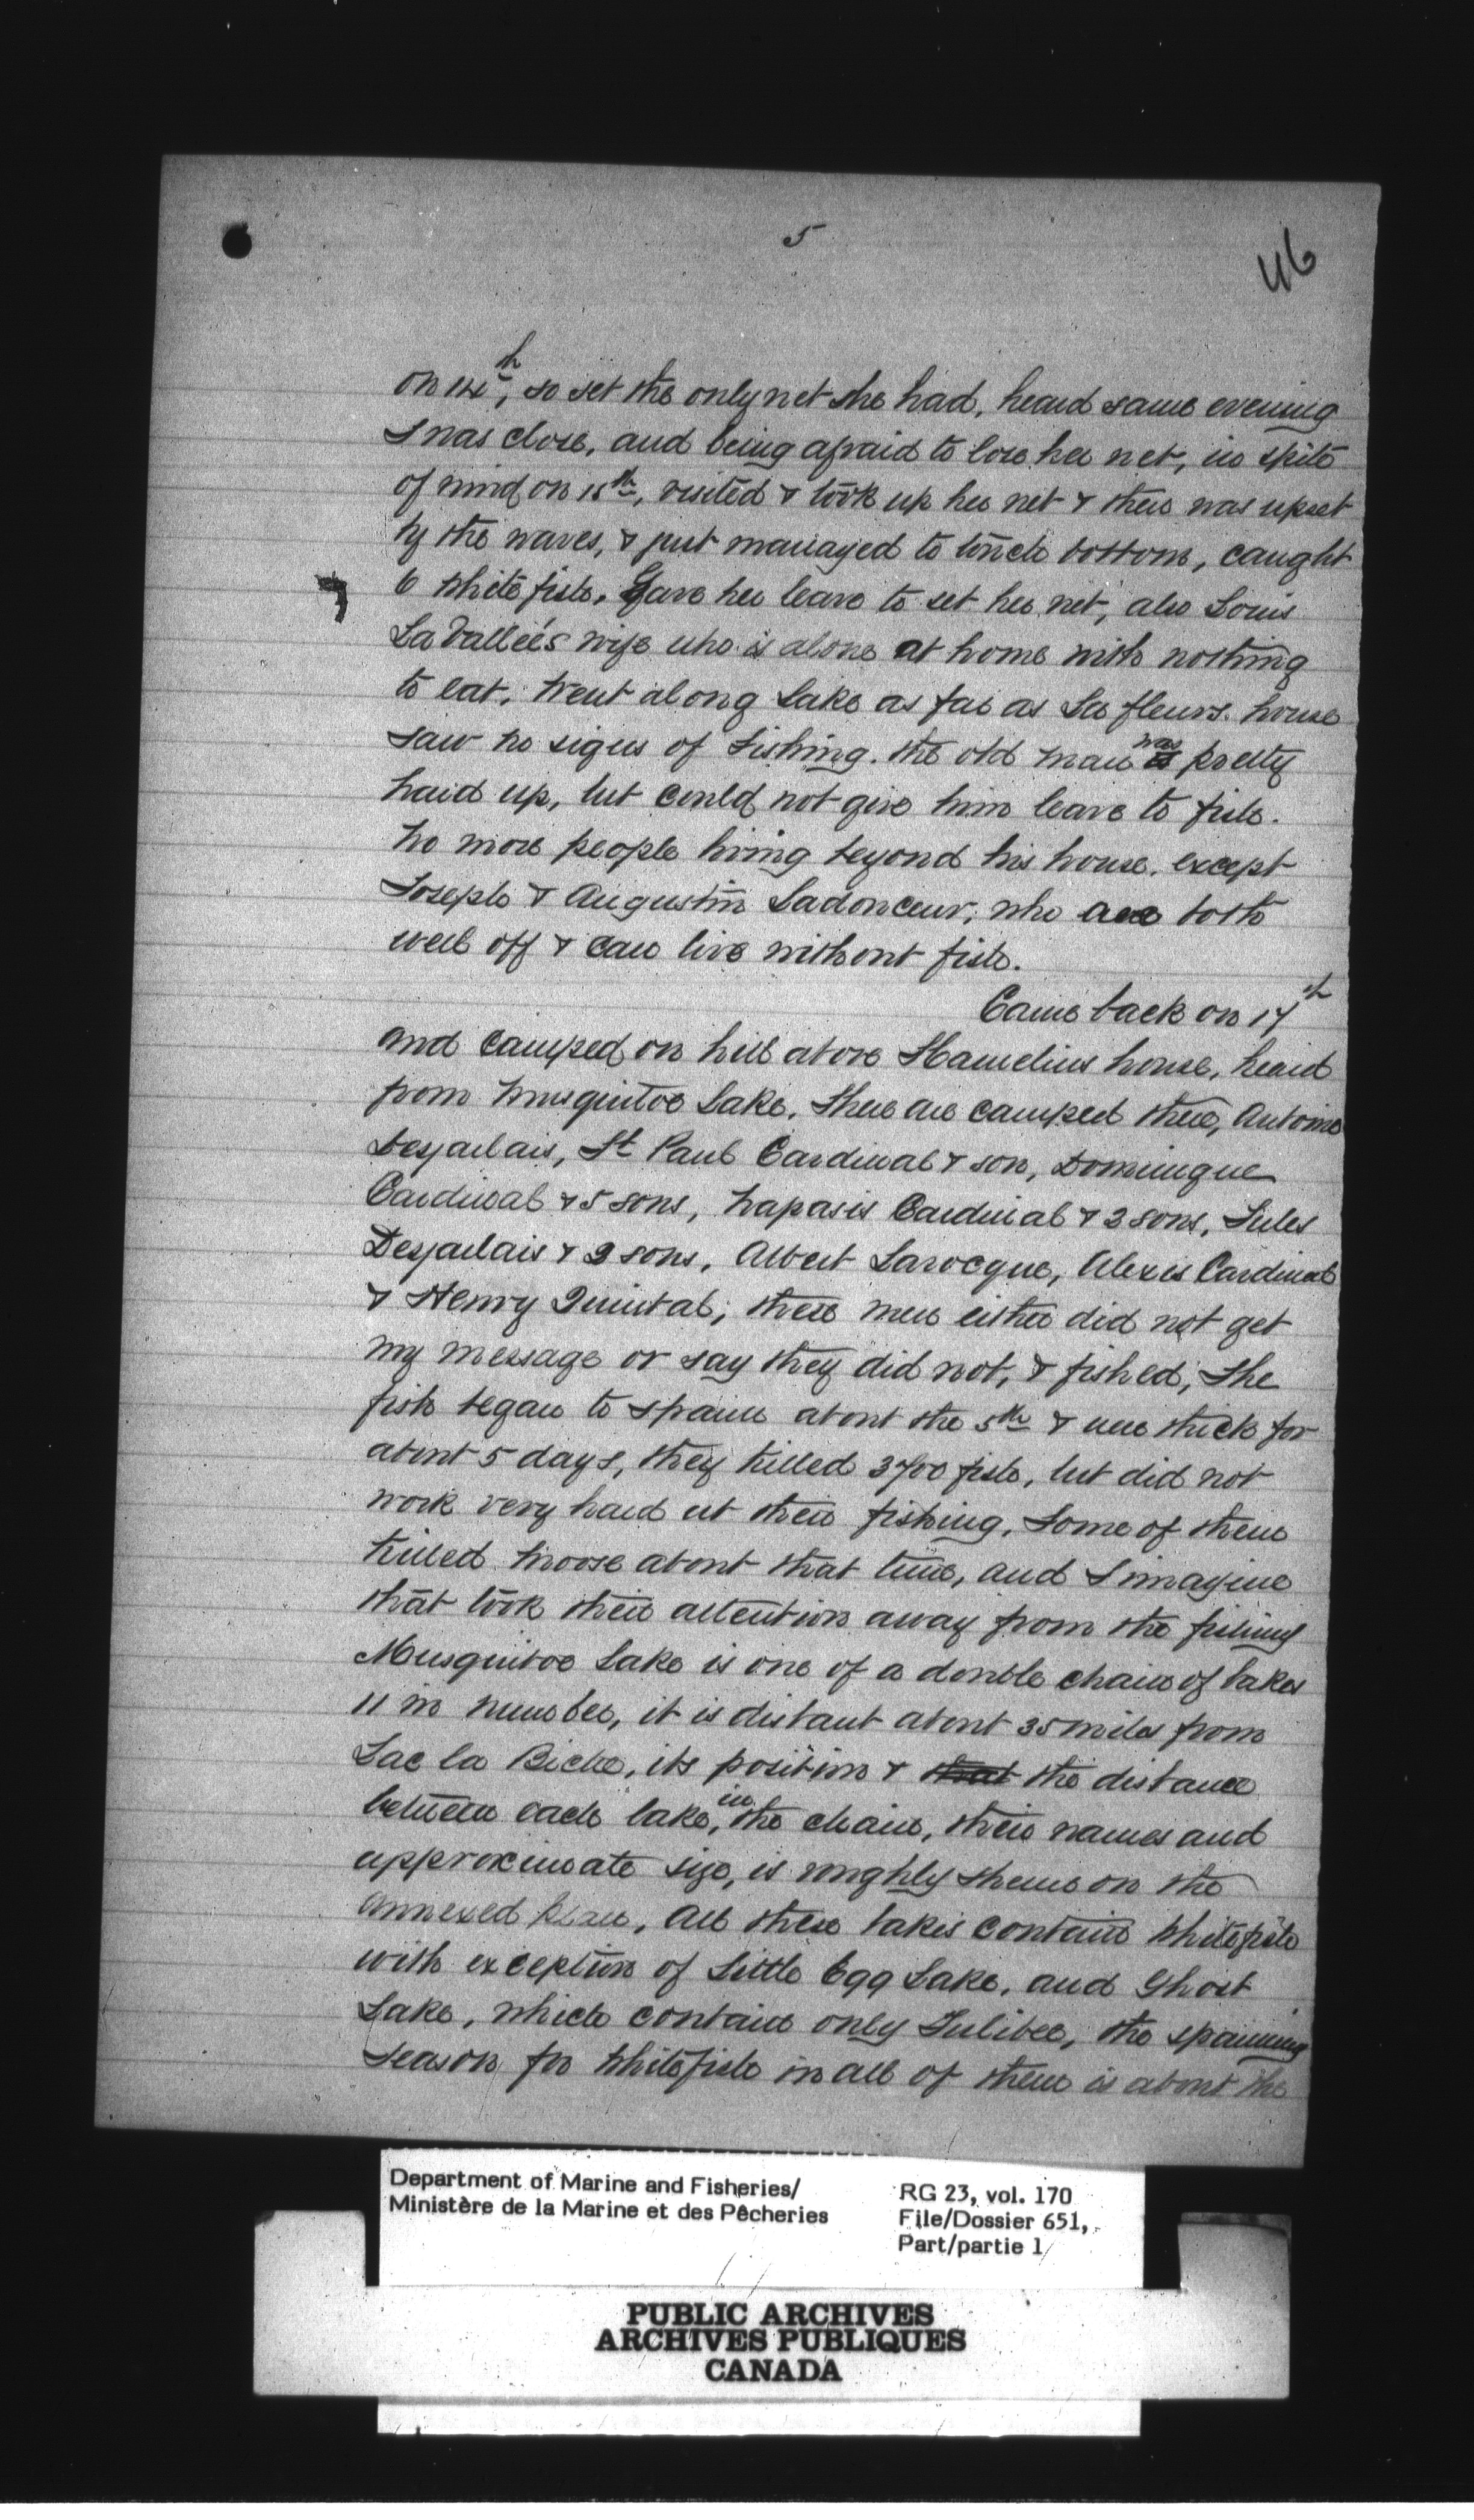 5
46
on 14th, so set the only net she had, heard same evening
I was close, and being afraid to lose her net, in spite
of wind on 15th, visited & took up her net & then was upset
by the waves, & just managed to touch bottom, caught
6 Whitefish. Gave her leave to set her net, also Louis
LaVallée's wife who is alone at home with nothing
to eat. Went along Lake as far as La fleurs house
saw no signs of fishing. the old man was pretty
hard up, but could not give him leave to fish.
No more people living beyond his house, except
Joseph & Augustin Ladouceur, who are both
well off & can live without fish.
Came back on 17th
and camped on hill above Hamelins house, heard
from Musquitoe Lake. There are camped there, Antoine
Desjarlais, St Paul Cardinal & son, Domingue
Cardinal & 5 sons, Napasis Cardinal & 3 sons, Jules
Desjarlais & 2 sons, Albert Larocque, Alexis Cardinal
& Henry Quintal; these men either did not get
my message or say they did not, & fished, The
fish began to spawn about the 5th & were thick for
about 5 days, they killed 3700 fish, but did not
work very hard at their fishing. Some of them
killed Moose about that time, and I imagine
that took their attention away from the fishing
Musquitoe Lake is one of a double chain of lakes
11 in number, it is distant about 35 miles from
Lac la Biche, its position & that the distance
between each lake, in the chain, their names and
approximate size, is roughly shewn on the
annexed plan. All these lakes contain Whitefish
with exception of Little Egg Lake, and Ghost
Lake, which contain only Tulibee, the spawning
season for Whitefish in all of them is about the
Department of Marine and Fisheries/
Ministère de la Marine et des Pêcheries
RG 23, vol. 170
File/Dossier 651,
Part/partie 1
PUBLIC ARCHIVES
ARCHIVES PUBLIQUES
CANADA